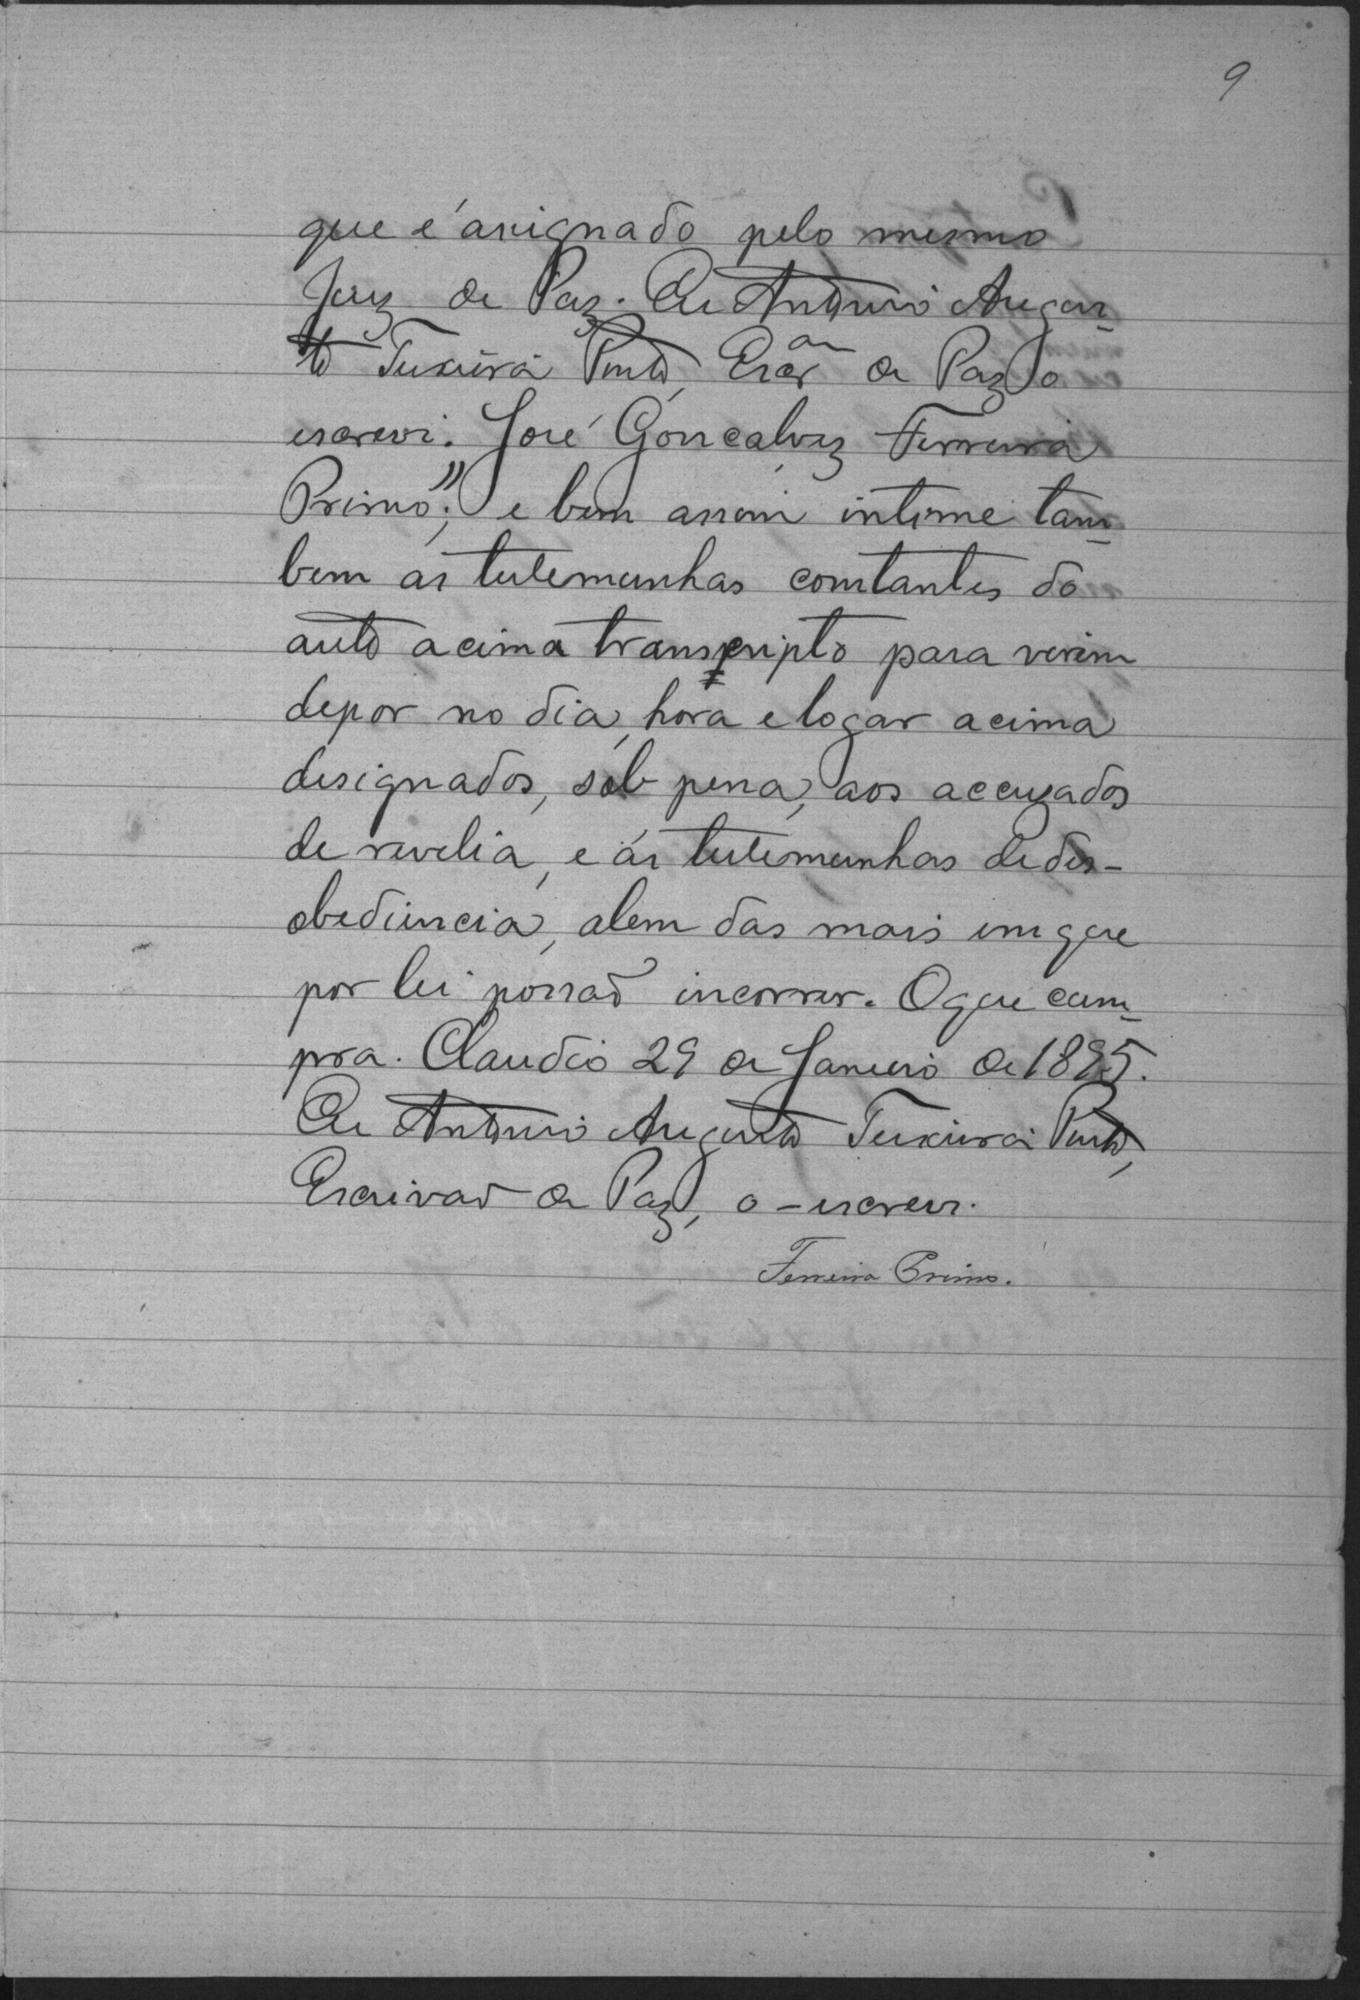 9
que é assignado pelo mesmo
Juiz de Paz. Eu Antonio Augus-
to Teixeira Pinto, Escr.ão de Paz o
escrevi. José Gonçalvez Ferreira
Primo"; e bem assim intime tam-
bem as testemunhas constantes do
auto acima transcripto para virem
depor no dia, hora e logar acima
designados, sob pena, aos accuzados
de revelia, e ás testemunhas de des-
obediencia, alem das mais em que
por lei possaõ incorrer. O que cum-
pra. Claudio 29 de Janeiro de 1895.
Eu Antonio Augusto Teixeira Pinto,
Escrivaõ de Paz, o escrevi.
Ferreira Primo.